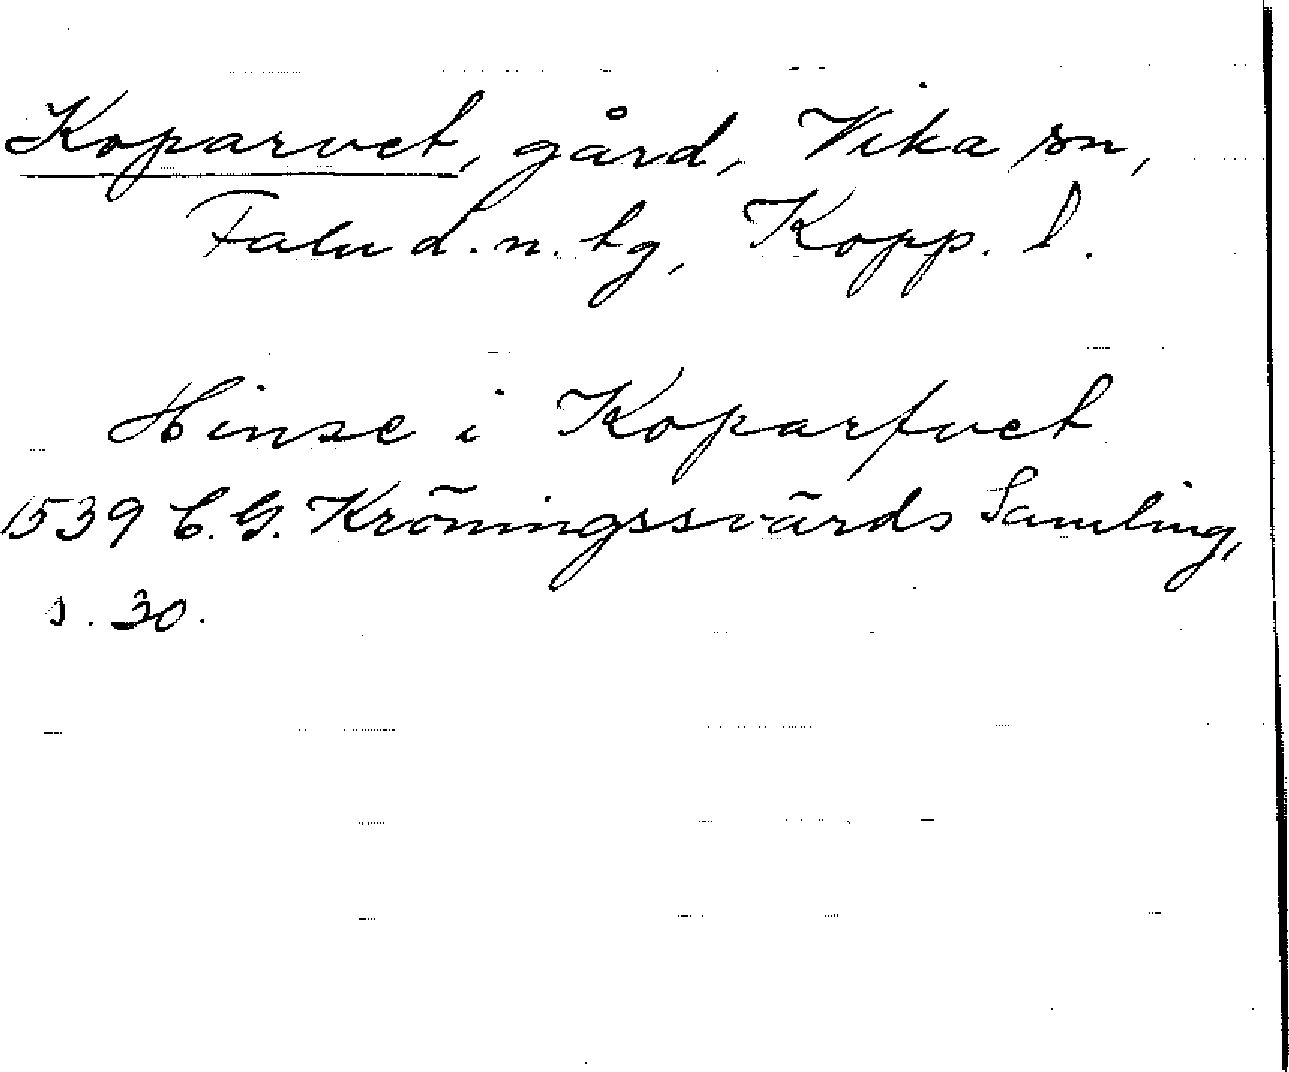 Koparvet, gård, Vika sn,
Falu d. n. tg, Kopp. l.
Hinse i Koparfvet
1539 C. G. Kröningssvärds Samling,
s. 30.